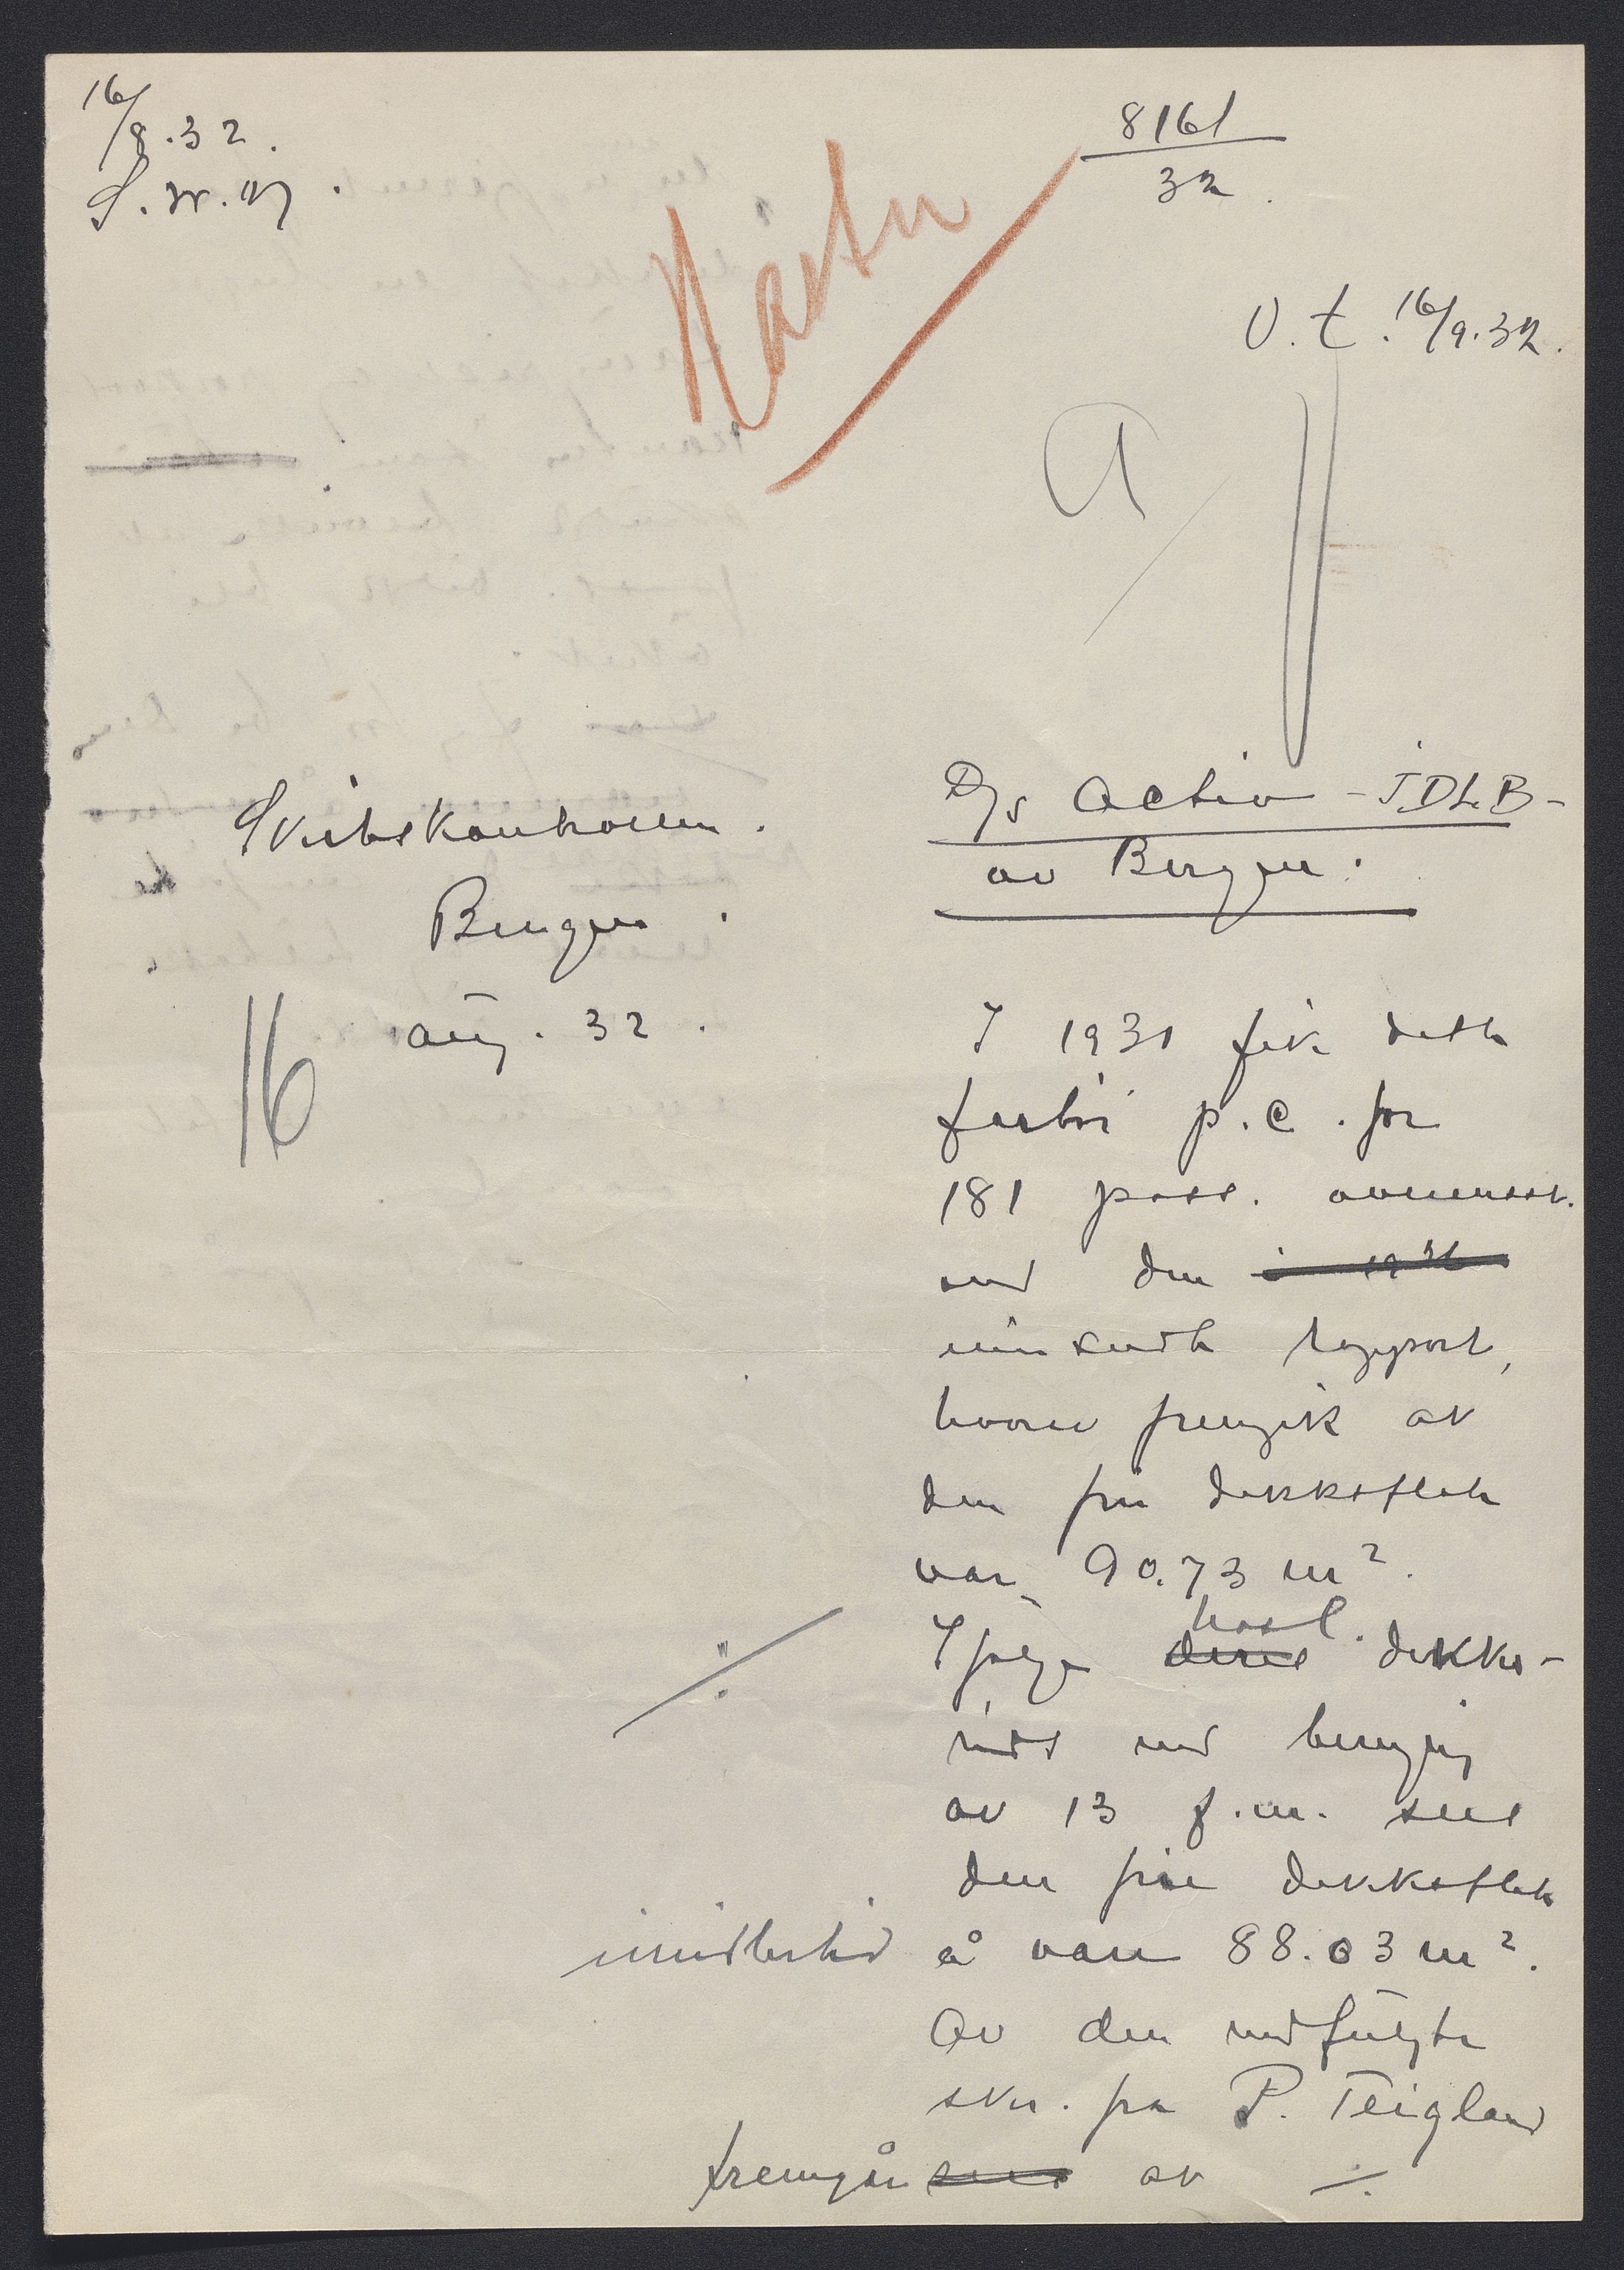 16/8.32.
S. W. M.
8161
32.
Haster
V. t. 16/9.32.
A
Skibskontrollen.
Bergen.
16 aug. 32.
D/s Activ - J.D.L.B -
av Bergen.
I 1931 fik dette
fartøi p.c. for
181 pass. overensst.
med den i 1931
innsendte rapport,
hvorav fremgik at
den frie dekksflate
var 90.73 m².
Ifølge hosl. deres dekks-
riss med
av 13 f.m. sees
den frie dekksflate
imidlertid å være 88.03 m².
Av den medfulgte
skr. fra P. Teigland
fremgår sees at ./.